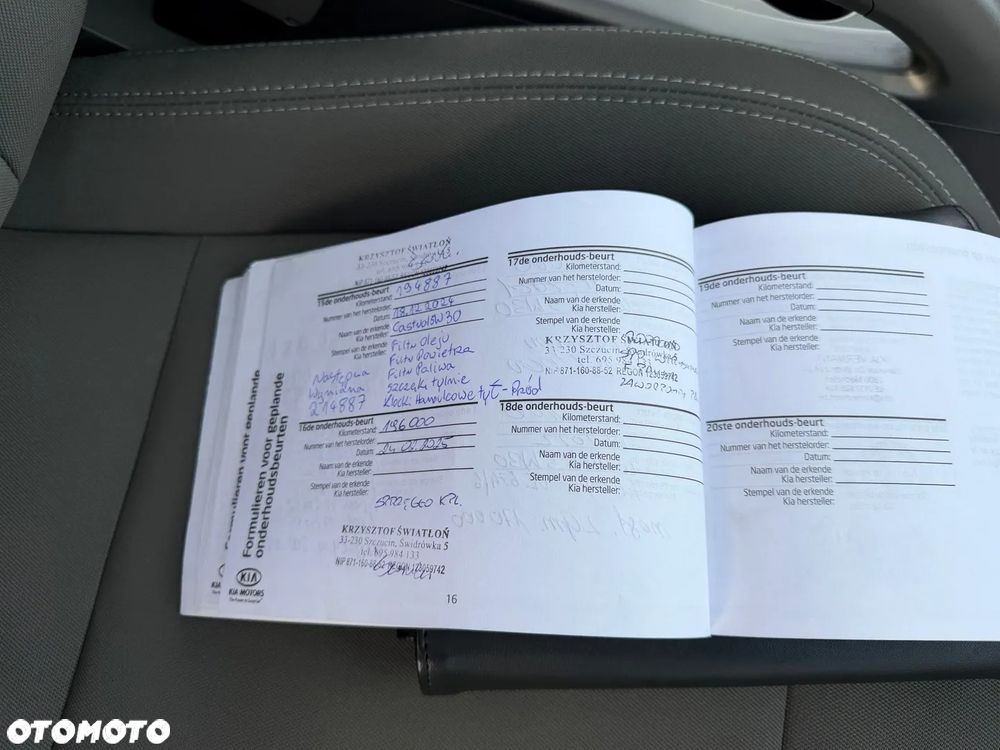 KRZYSZTOF ŚWIATŁOŃ
33-230 Szczucin, Świdrówka 5
15de onderhouds-beurt
Kilometerstand: 194887
Nummer van het herstelorder:
Datum: 18.12.2024
Naam van de erkende Kia hersteller: Castrol 5W30
Stempel van de erkende
Kia hersteller:
Filtr Oleju
Filtr Powietrza
Filtr Paliwa
Szczęki tylnie
Klocki Hamulcowe tył - Przód
Następna
Wymiana
214887
16de onderhouds-beurt
Kilometerstand: 196.000
Nummer van het herstelorder:
Datum: 24.02.2025
Naam van de erkende
Kia hersteller:
Stempel van de erkende
Kia hersteller:
SPRZĘGŁO KPL.
KRZYSZTOF ŚWIATŁOŃ
33-230 Szczucin, Świdrówka 5
tel. 695 984 133
NIP 871-160-88-52 REGON 123059742
16
17de onderhouds-beurt
Kilometerstand:
Nummer van het herstelorder:
Datum:
Naam van de erkende
Kia hersteller:
Stempel van de erkende
Kia hersteller:
KRZYSZTOF
33-230 Szczucin, Świdrówka 5
tel. 695
NIP 871-160-88-52 REGON 123059742
18de onderhouds-beurt
Kilometerstand:
Nummer van het herstelorder:
Datum:
Naam van de erkende
Kia hersteller:
Stempel van de erkende
Kia hersteller:
19de onderhouds-beurt
Kilometerstand:
Nummer van het herstelorder:
Datum:
Naam van de erkende
Kia hersteller:
Stempel van de erkende
Kia hersteller:
20ste onderhouds-beurt
Kilometerstand:
Nummer van het herstelorder:
Datum:
Naam van de erkende
Kia hersteller:
Stempel van de erkende
Kia hersteller:
Formulieren voor geplande
Formulieren voor geplande
onderhoudsbeurten
KIA
KIA MOTORS
The Power to Surprise
OTOMOTO